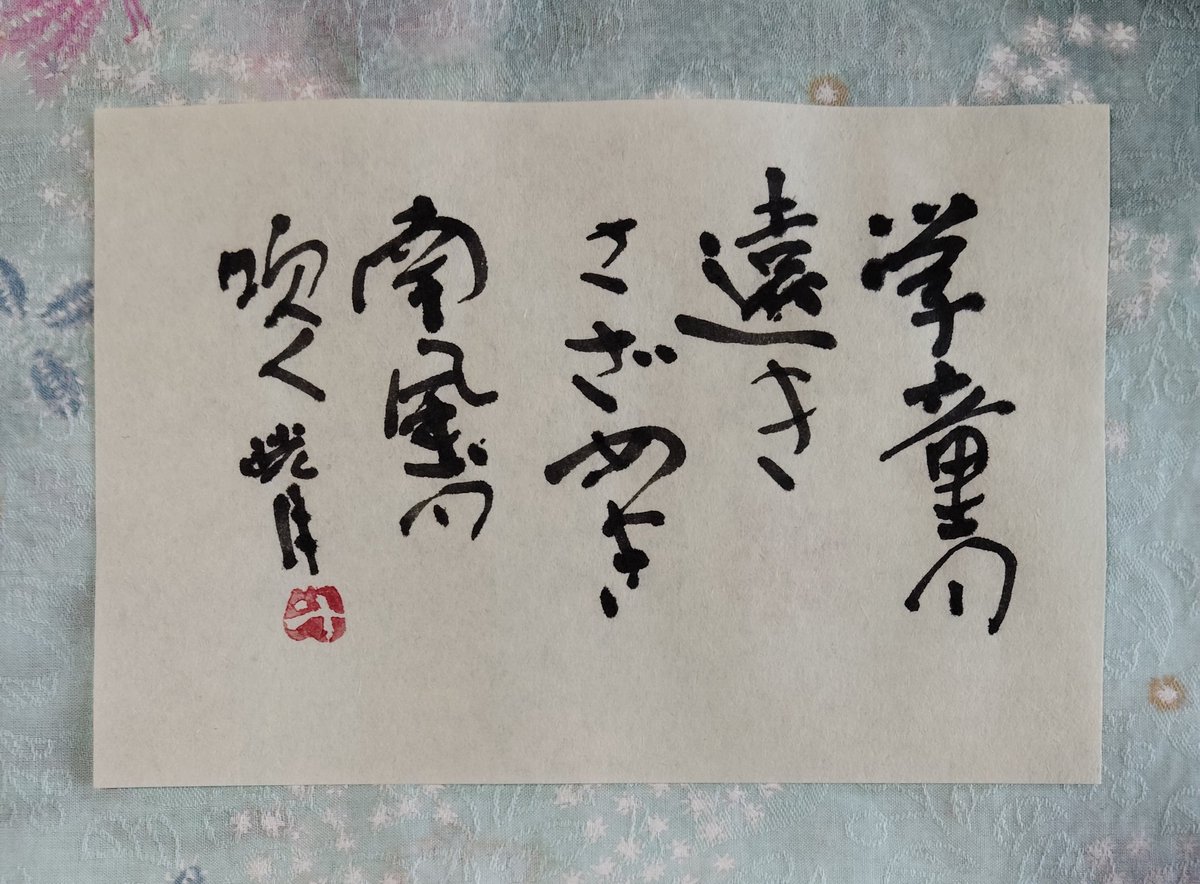 学童の
遠き
さざめき
南風の
吹く